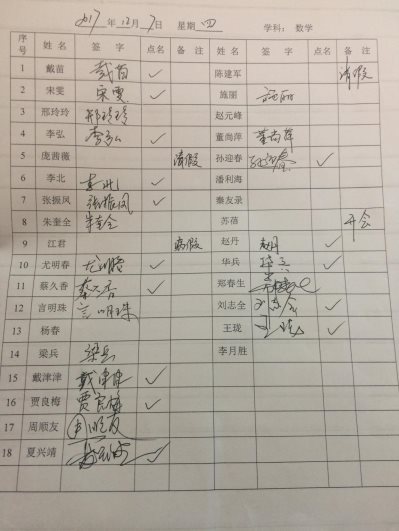 2017年12月7日 星期四 学科：数学
序号 姓名 签字 点名 备注 姓名 签字 点名 备注
1 戴苗 戴苗 ✓ 陈建军 请假
2 宋雯 宋雯 ✓ 施丽 施丽
3 邢玲玲 邢玲玲 赵元峰
4 李弘 李弘 ✓ 董尚萍 董尚萍
5 庞茜薇 请假 孙迎春 孙迎春 ✓
6 李北 李北 ✓ 潘利海
7 张振凤 张振凤 ✓ 秦友录
8 朱奎全 朱奎全 苏蓓 开会
9 江君 病假 赵丹 赵丹 ✓
10 尤明春 尤明春 ✓ 华兵 华兵 ✓
11 蔡久香 蔡久香 ✓ 郑春生
12 言明珠 言明珠 刘志全 刘志全 ✓
13 杨春 王珑 王珑 ✓
14 梁兵 梁兵 李月胜
15 戴津津 戴津津 ✓
16 贾良梅 贾良梅 ✓
17 周顺友 周顺友
18 夏兴靖 ✓